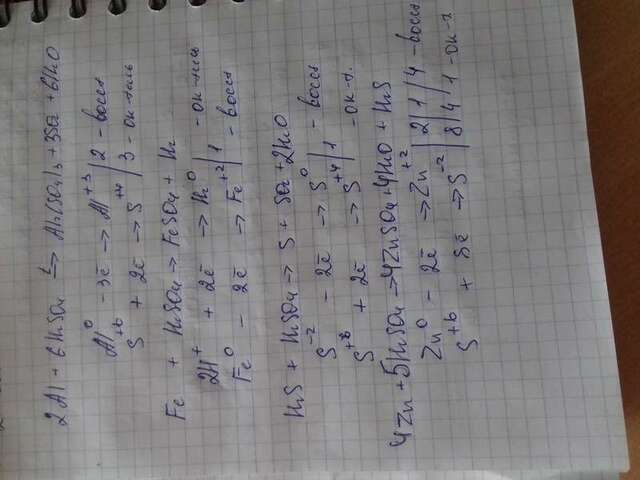 2Al + 6H₂SO₄ →ᵗ Al₂(SO₄)₃ + 3SO₂ + 6H₂O
Al⁰ - 3ē → Al⁺³ | 2 - восст
S⁺⁶ + 2ē → S⁺⁴ | 3 - ок-тель
Fe + H₂SO₄ → FeSO₄ + H₂
2H⁺ + 2ē → H₂⁰ | 1 - ок-тель
Fe⁰ - 2ē → Fe⁺² | 1 - восст
H₂S + H₂SO₄ → S + SO₂ + 2H₂O
S⁻² - 2ē → S⁰ | 1 - восст
S⁺⁶ + 2ē → S⁺⁴ | 1 - ок-т.
4Zn + 5H₂SO₄ → 4ZnSO₄ + 4H₂O + H₂S
Zn⁰ - 2ē → Zn⁺² | 2 | 1 | 4 - восст
S⁺⁶ + 8ē → S⁻² | 8 | 4 | 1 - ок-л